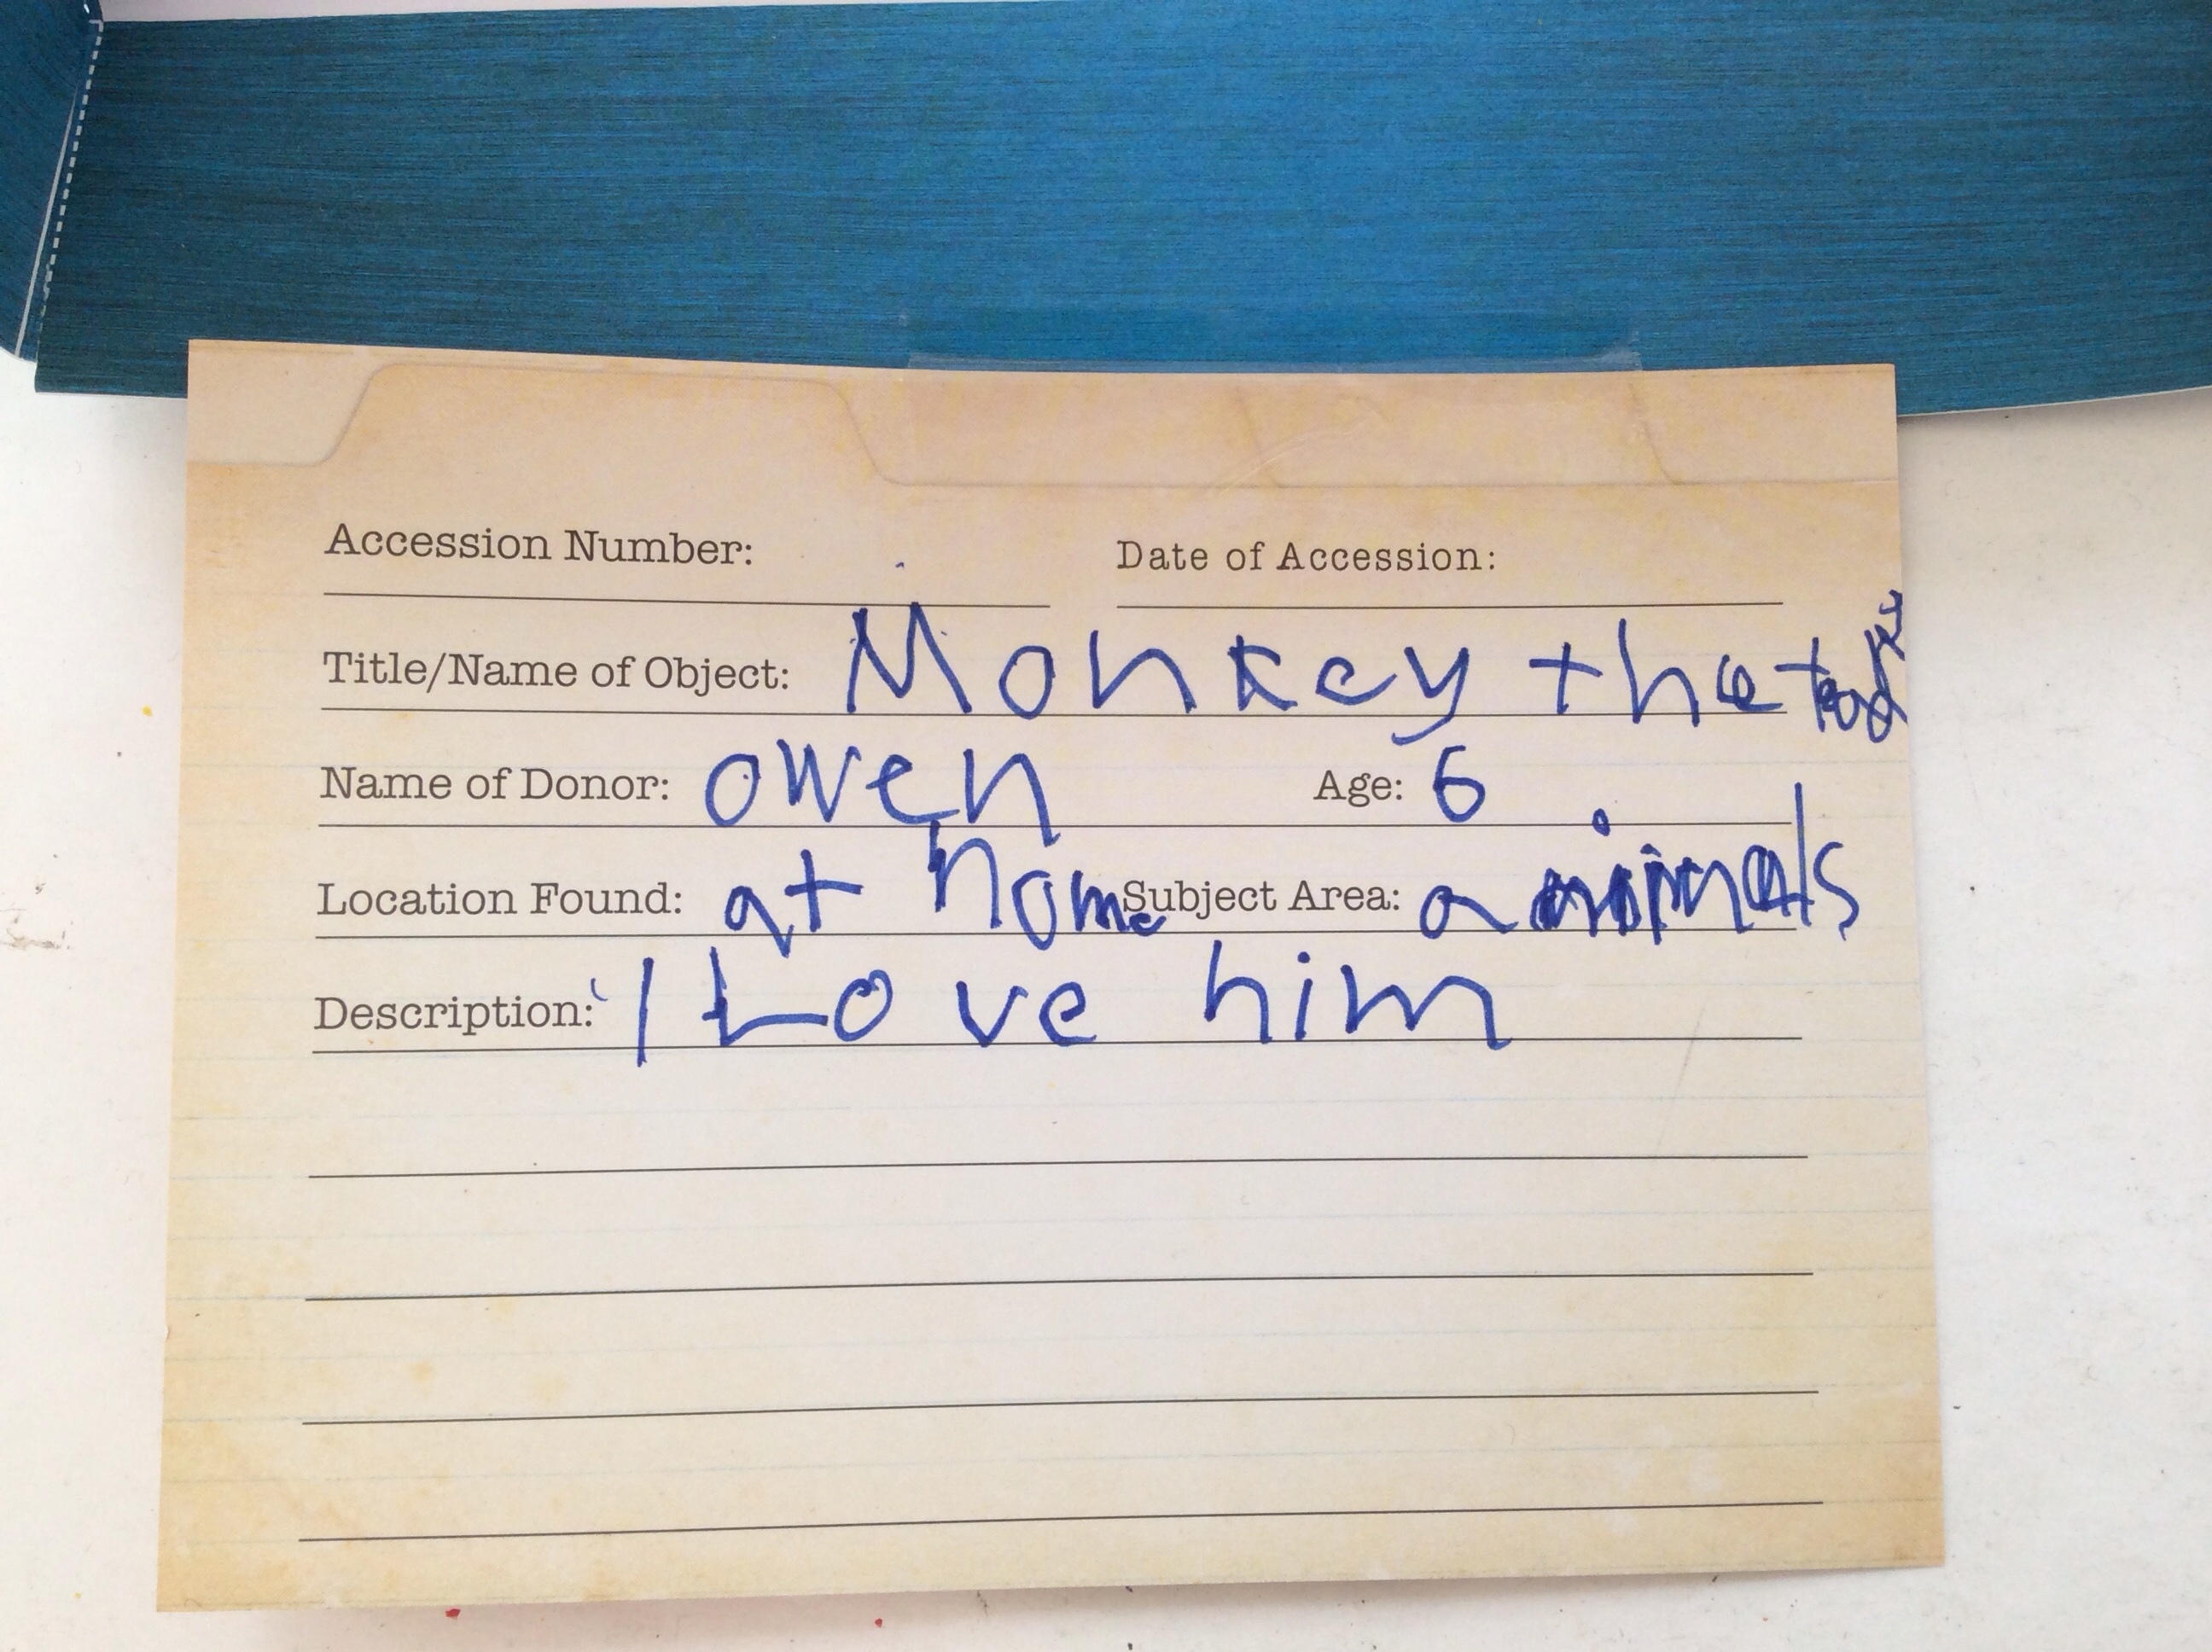 Accession Number: Date of Accession:
Title/Name of Object: Monkey the
Name of Donor: owen Age: 6
Location Found: at home Subject Area: animals
Description: I Love him